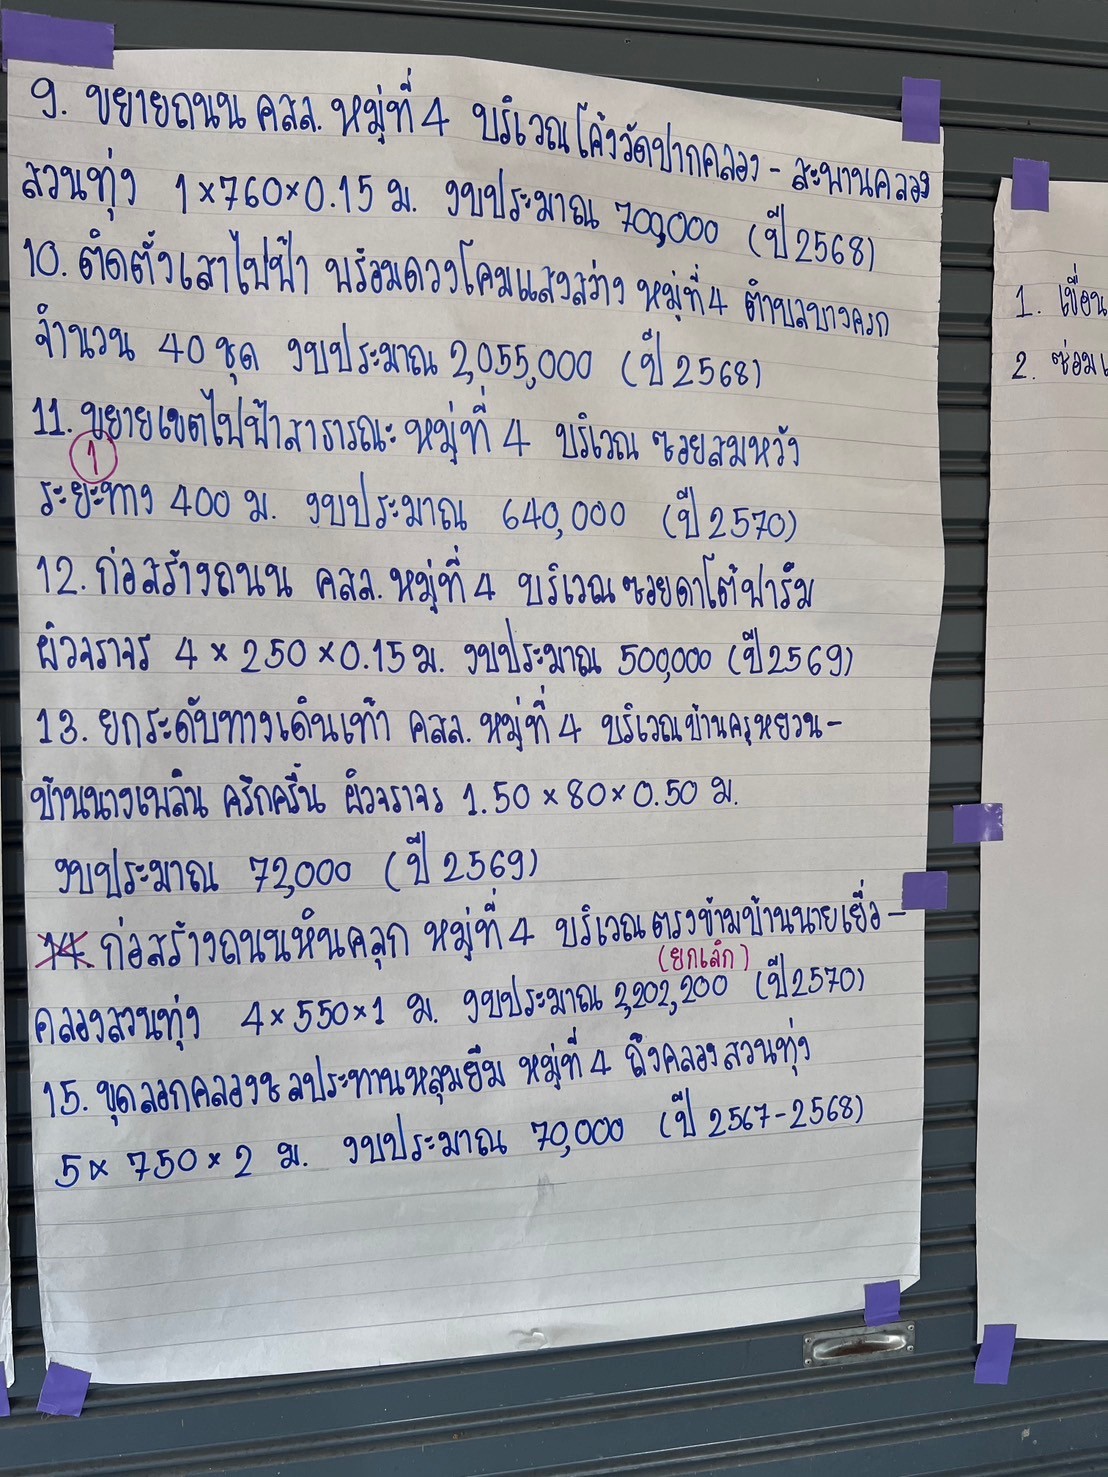 9. ขยายถนน คสล. หมู่ที่ 4 บริเวณ โค้งวัดปากคลอง - สะพานคลอง
สวนทุ่ง 1×760×0.15 ม. งบประมาณ 700,000 (ปี 2568)
10. ติดตั้งเสาไฟฟ้า พร้อมดวงโคมแสงสว่าง หมู่ที่ 4 ตำบลบางครก
จำนวน 40 ชุด งบประมาณ 2,055,000 (ปี 2568)
11. ขยายเขตไฟฟ้าสาธารณะ หมู่ที่ 4 บริเวณ ซอยสมหวัง
1
ระยะทาง 400 ม. งบประมาณ 640,000 (ปี 2570)
12. ก่อสร้างถนน คสล. หมู่ที่ 4 บริเวณ ซอยดาโต้ฟาร์ม
ผิวจราจร 4 × 250 × 0.15 ม. งบประมาณ 500,000 (ปี 2569)
13. ยกระดับทางเดินเท้า คสล. หมู่ที่ 4 บริเวณบ้านครูหยวน -
บ้านนางเพลิน ครึกครื้น ผิวจราจร 1.50 × 80 × 0.50 ม.
งบประมาณ 72,000 (ปี 2569)
14. ก่อสร้างถนนหินคลุก หมู่ที่ 4 บริเวณ ตรงข้ามบ้านนายเยื่อ -
(ยกเลิก)
คลองสวนทุ่ง 4×550×1 ม. งบประมาณ 2,202,200 (ปี 2570)
15. ขุดลอกคลองชลประทานหลุมยืม หมู่ที่ 4 ถึงคลองสวนทุ่ง
5 × 750 × 2 ม. งบประมาณ 70,000 (ปี 2567-2568)
1. เขื่อน
2. ซ่อม